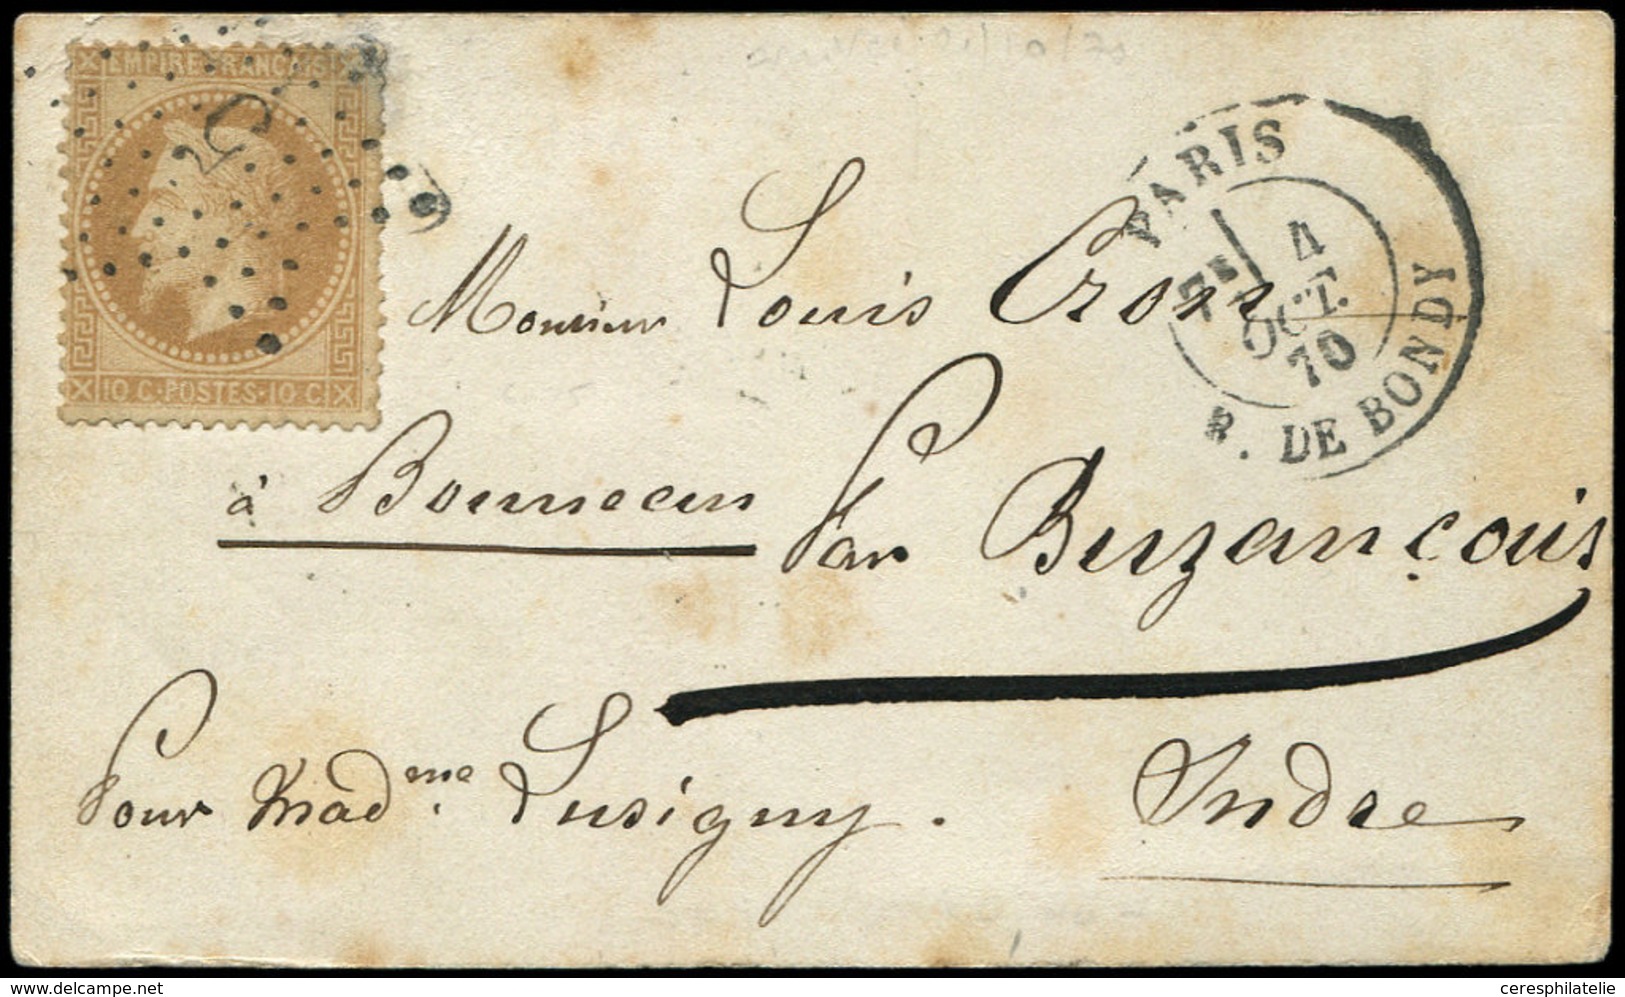 EMPIRE FRANÇAIS
5
10 C·POSTES·10 C
PARIS
7E
4
OCT.
70
R. DE BONDY
Monsieur Louis Cron
à Bonneau Par Buzançais
Pour Madme. Lusigny. Indre
delcampe.net
ceresphilatelie